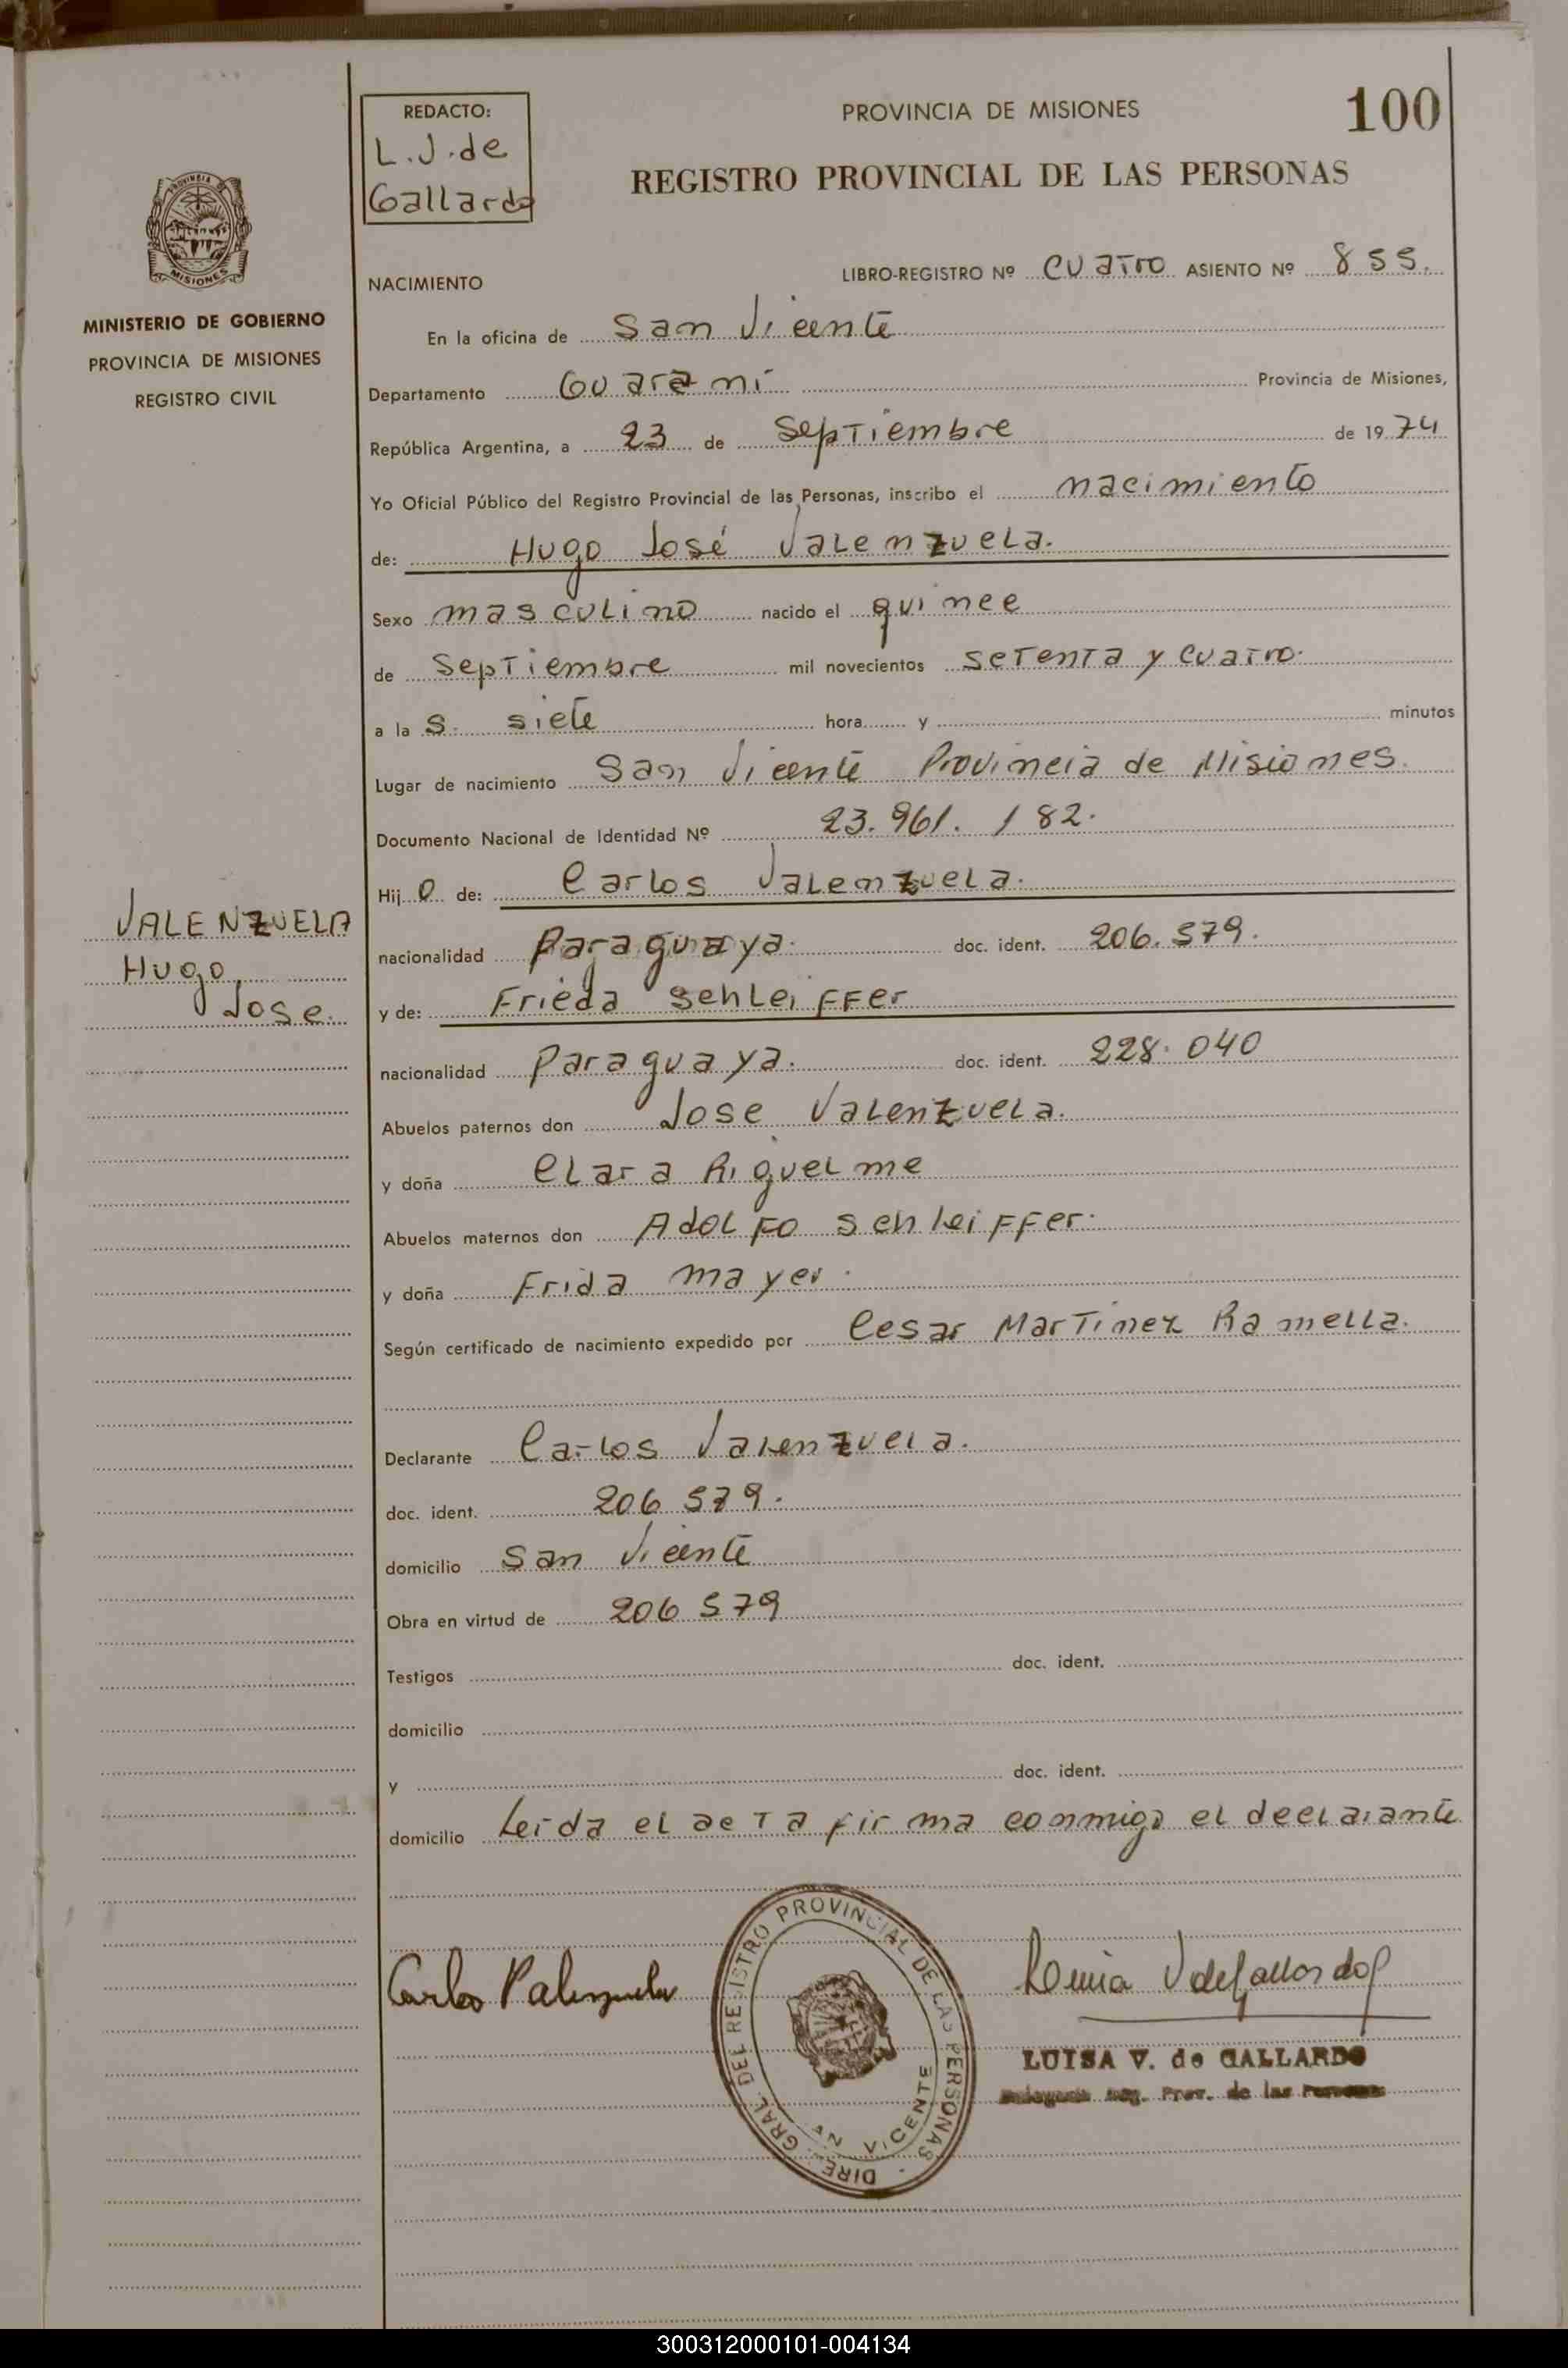 REDACTO:
L. J. de
Gallardo
PROVINCIA DE MISIONES
100
REGISTRO PROVINCIAL DE LAS PERSONAS
PROVINCIA DE
MISIONES
MINISTERIO DE GOBIERNO
PROVINCIA DE MISIONES
REGISTRO CIVIL
NACIMIENTO
LIBRO-REGISTRO Nº cuatro ASIENTO Nº 855.
En la oficina de San Vicente
Departamento Guaraní Provincia de Misiones,
República Argentina, a 23 de Septiembre de 19 74
Yo Oficial Público del Registro Provincial de las Personas, inscribo el nacimiento
de: Hugo José Valenzuela.
Sexo masculino nacido el quince
de Septiembre mil novecientos setenta y cuatro.
a la s. siete hora y minutos
Lugar de nacimiento San Vicente Provincia de Misiones.
Documento Nacional de Identidad Nº 23.961.182.
Hij o de: Carlos Valenzuela.
nacionalidad Paraguaya. doc. ident. 206.579.
y de: Frieda Schleiffer
nacionalidad Paraguaya. doc. ident. 228.040
Abuelos paternos don Jose Valenzuela.
y doña Clara Riquelme
Abuelos maternos don Adolfo Schleiffer.
y doña Frida mayer.
Según certificado de nacimiento expedido por Cesar Martinez Ramella.
Declarante Carlos Valenzuela.
doc. ident. 206 579.
domicilio San Vicente
Obra en virtud de 206 579
Testigos doc. ident.
domicilio
y doc. ident.
domicilio Leida el acta firma conmigo el declarante
VALENZUELA
Hugo
Jose.
Carlos Valenzuela
DIRE. GRAL. DEL REGISTRO PROVINCIAL DE LAS PERSONAS
AN VICENTE
LUISA V. de GALLARDO
Reg. Prov. de las Personas
300312000101-004134